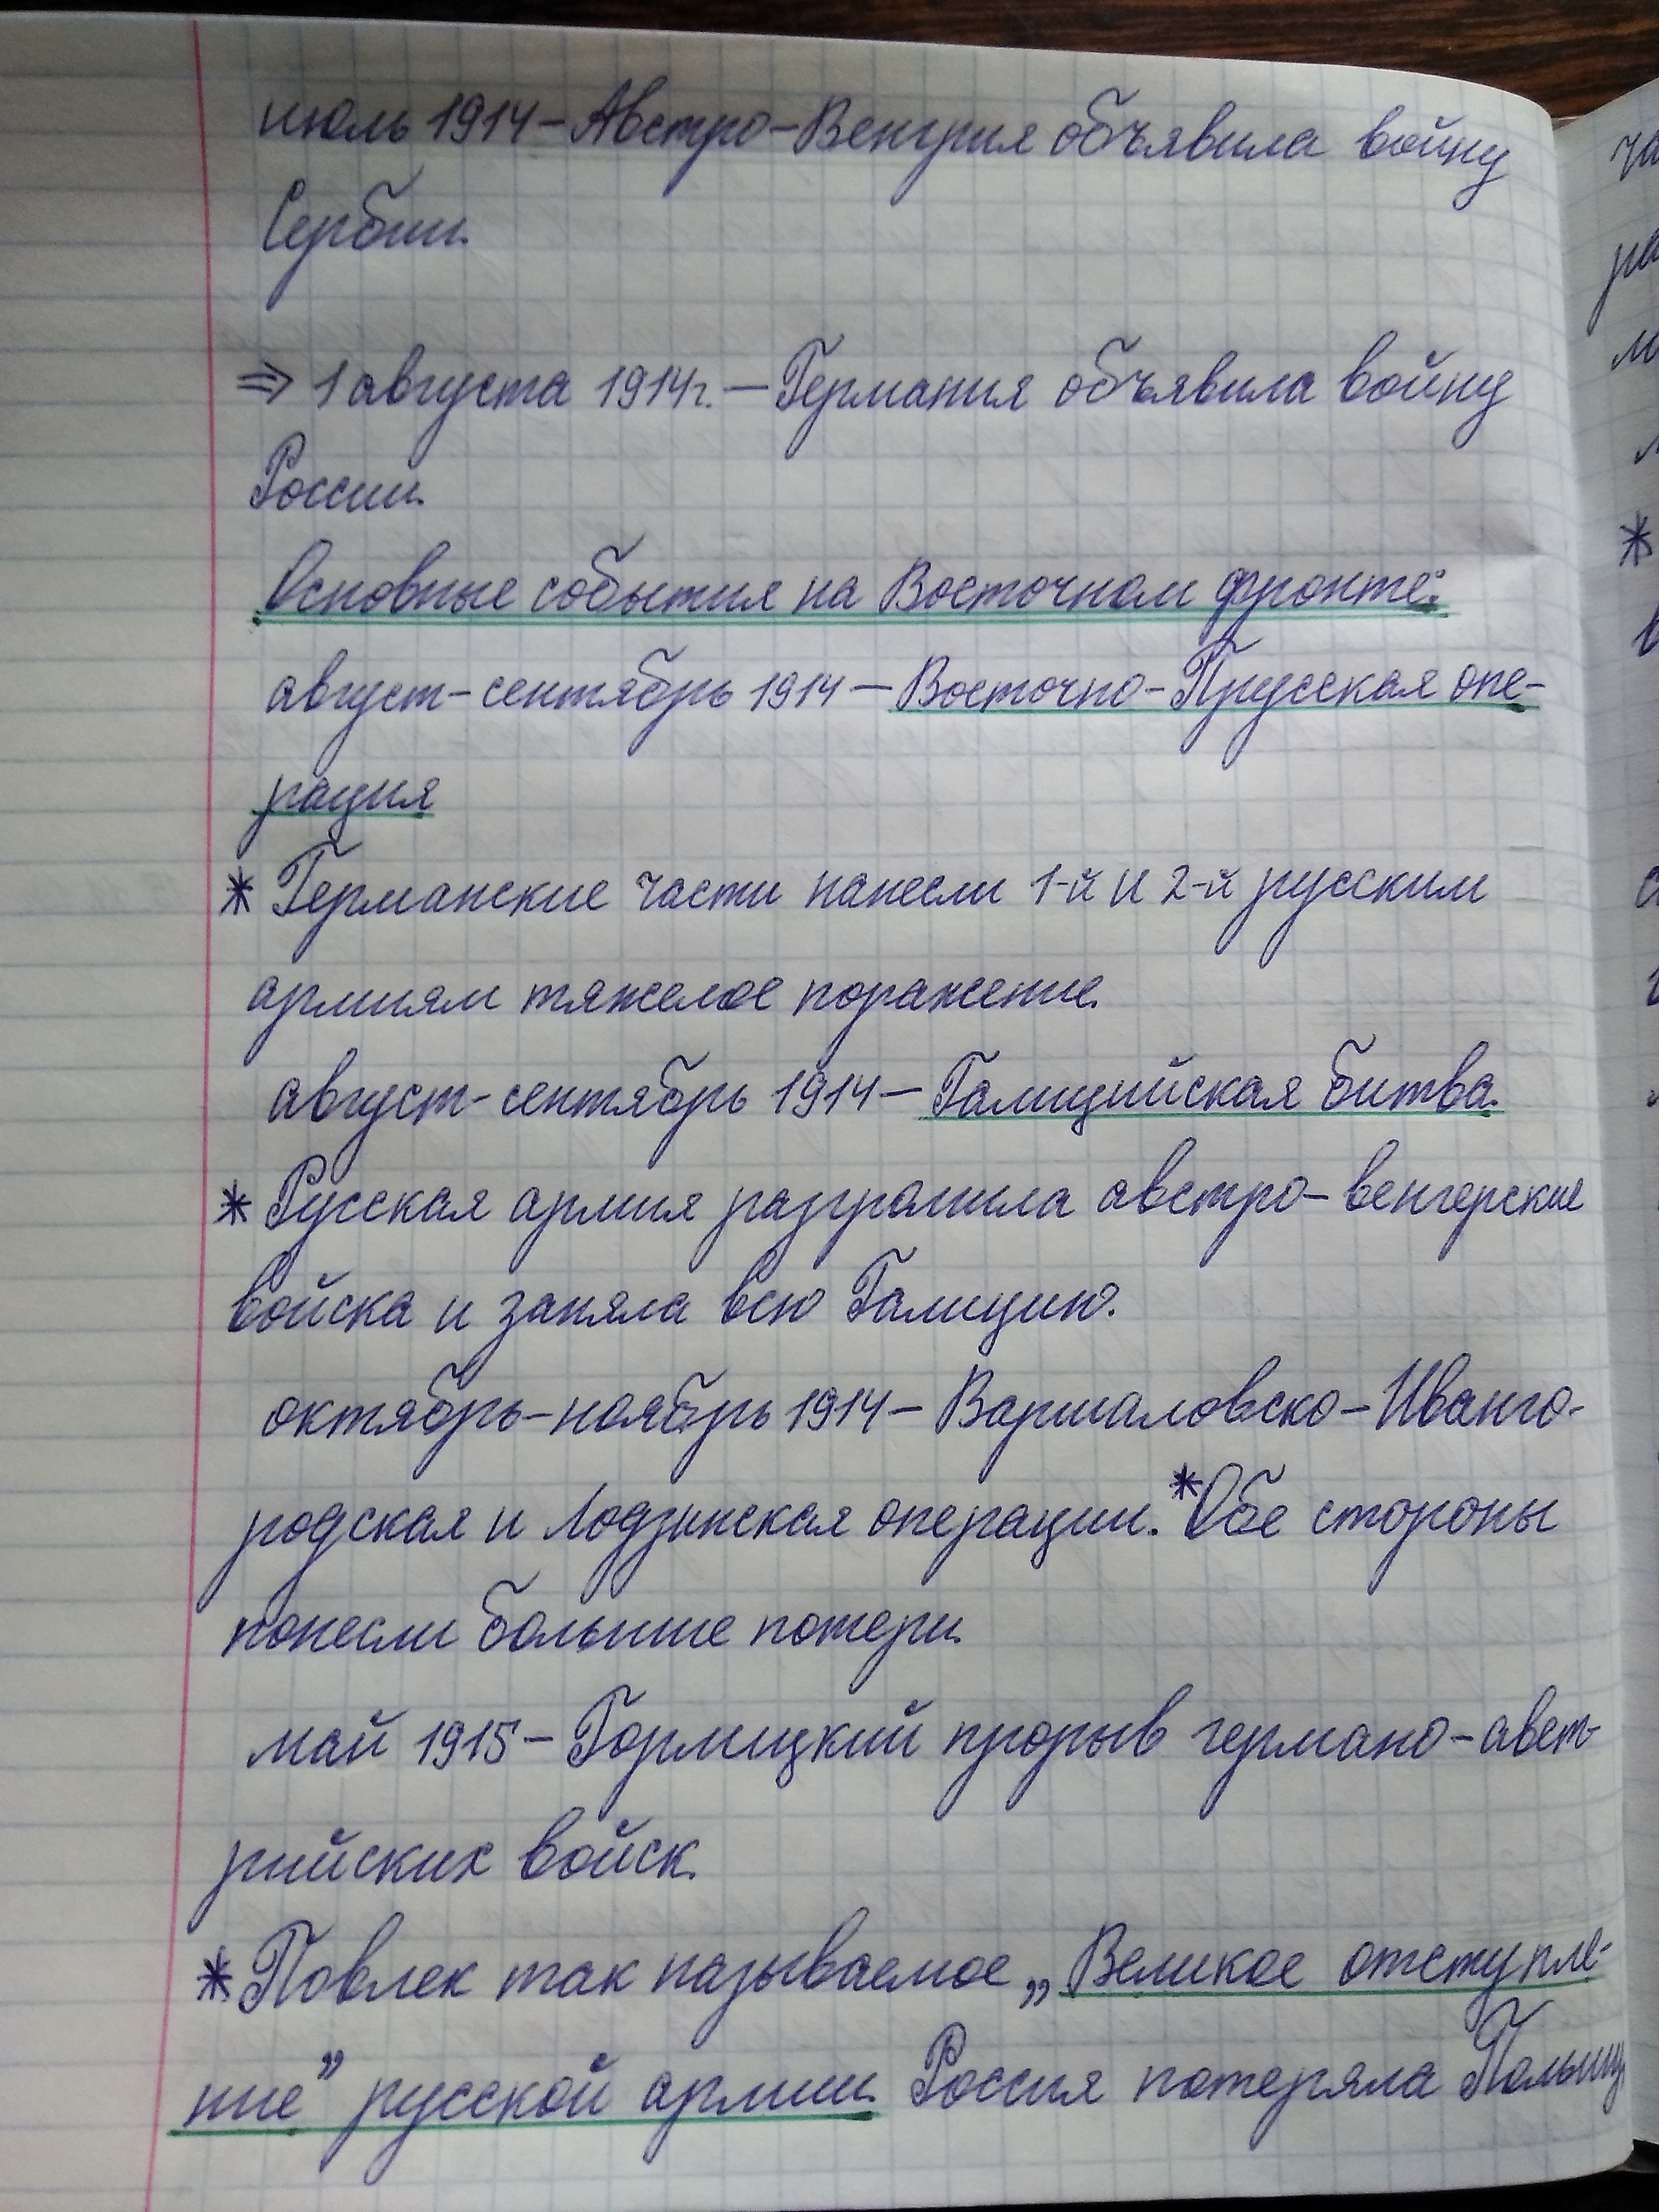 июль 1914 – Австро-Венгрия объявила войну
Сербии.
⇒ 1 августа 1914г. – Германия объявила войну
России.
Основные события на Восточном фронте:
август-сентябрь 1914 – Восточно-Прусская опе-
рация
* Германские части нанесли 1-й и 2-й русским
армиям тяжелое поражение.
август-сентябрь 1914 – Галицийская битва.
* Русская армия разгромила австро-венгерские
войска и заняла всю Галицию.
октябрь-ноябрь 1914 – Варшаловско-Иванго-
родская и Лодзинская операции. *Обе стороны
понесли большие потери.
май 1915 – Горлицкий прорыв германо-авст-
рийских войск.
* Повлек так называемое „Великое отступле-
ние” русской армии. Россия потеряла Польшу